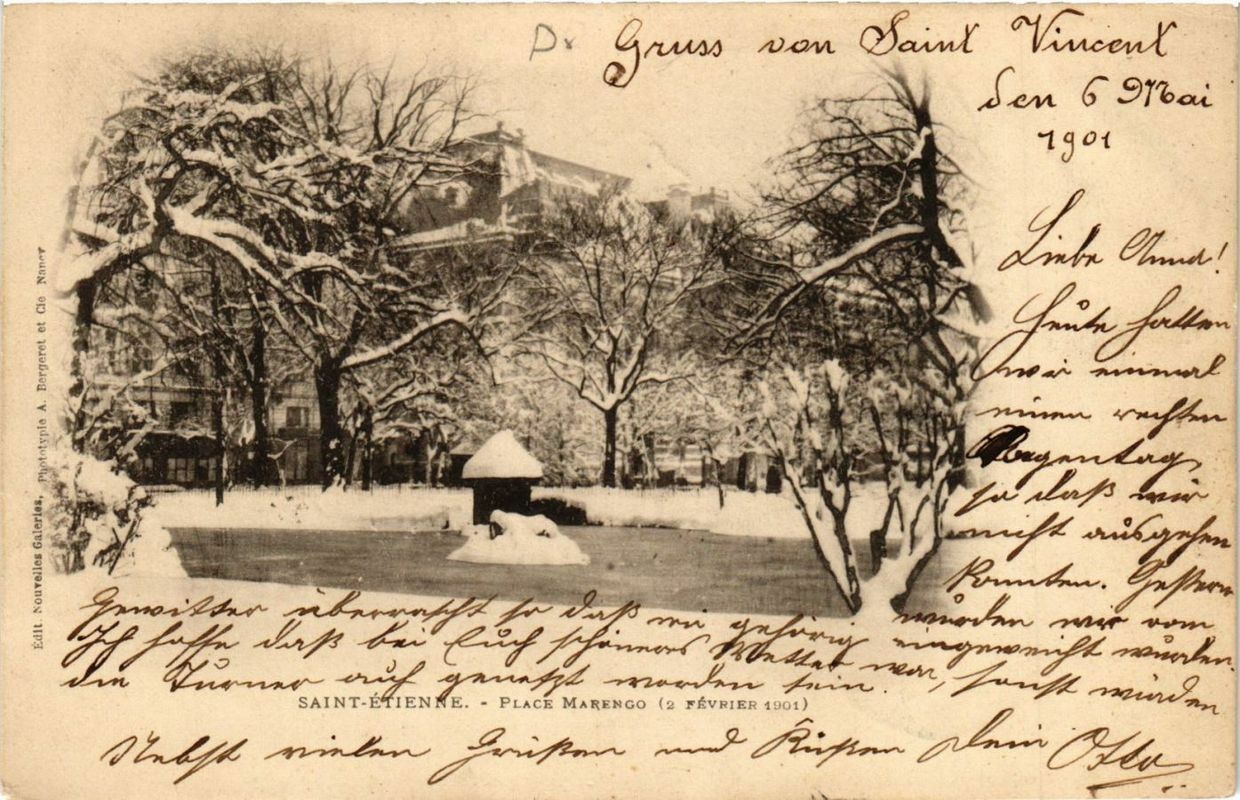 Gruss von Saint Vincent
den 6 Mai
1901
Liebe Anna!
Heute hatten
wir einmal
einen rechten
Regentag,
so daß wir
nicht ausgehen
konnten. Gestern
wurden wir vom
Gewitter überrascht so daß wir gehörig eingeweicht wurden.
Ich hoffe daß bei Euch schöneres Wetter war, sonst würden
die Turner auf genetzt worden sein.
SAINT-ÉTIENNE. - PLACE MARENGO (2 FÉVRIER 1901)
Nebst vielen Grüßen und Küßen Dein Otto
Édit Nouvelles Galeries, phototypie A. Bergeret et Cie Nancy